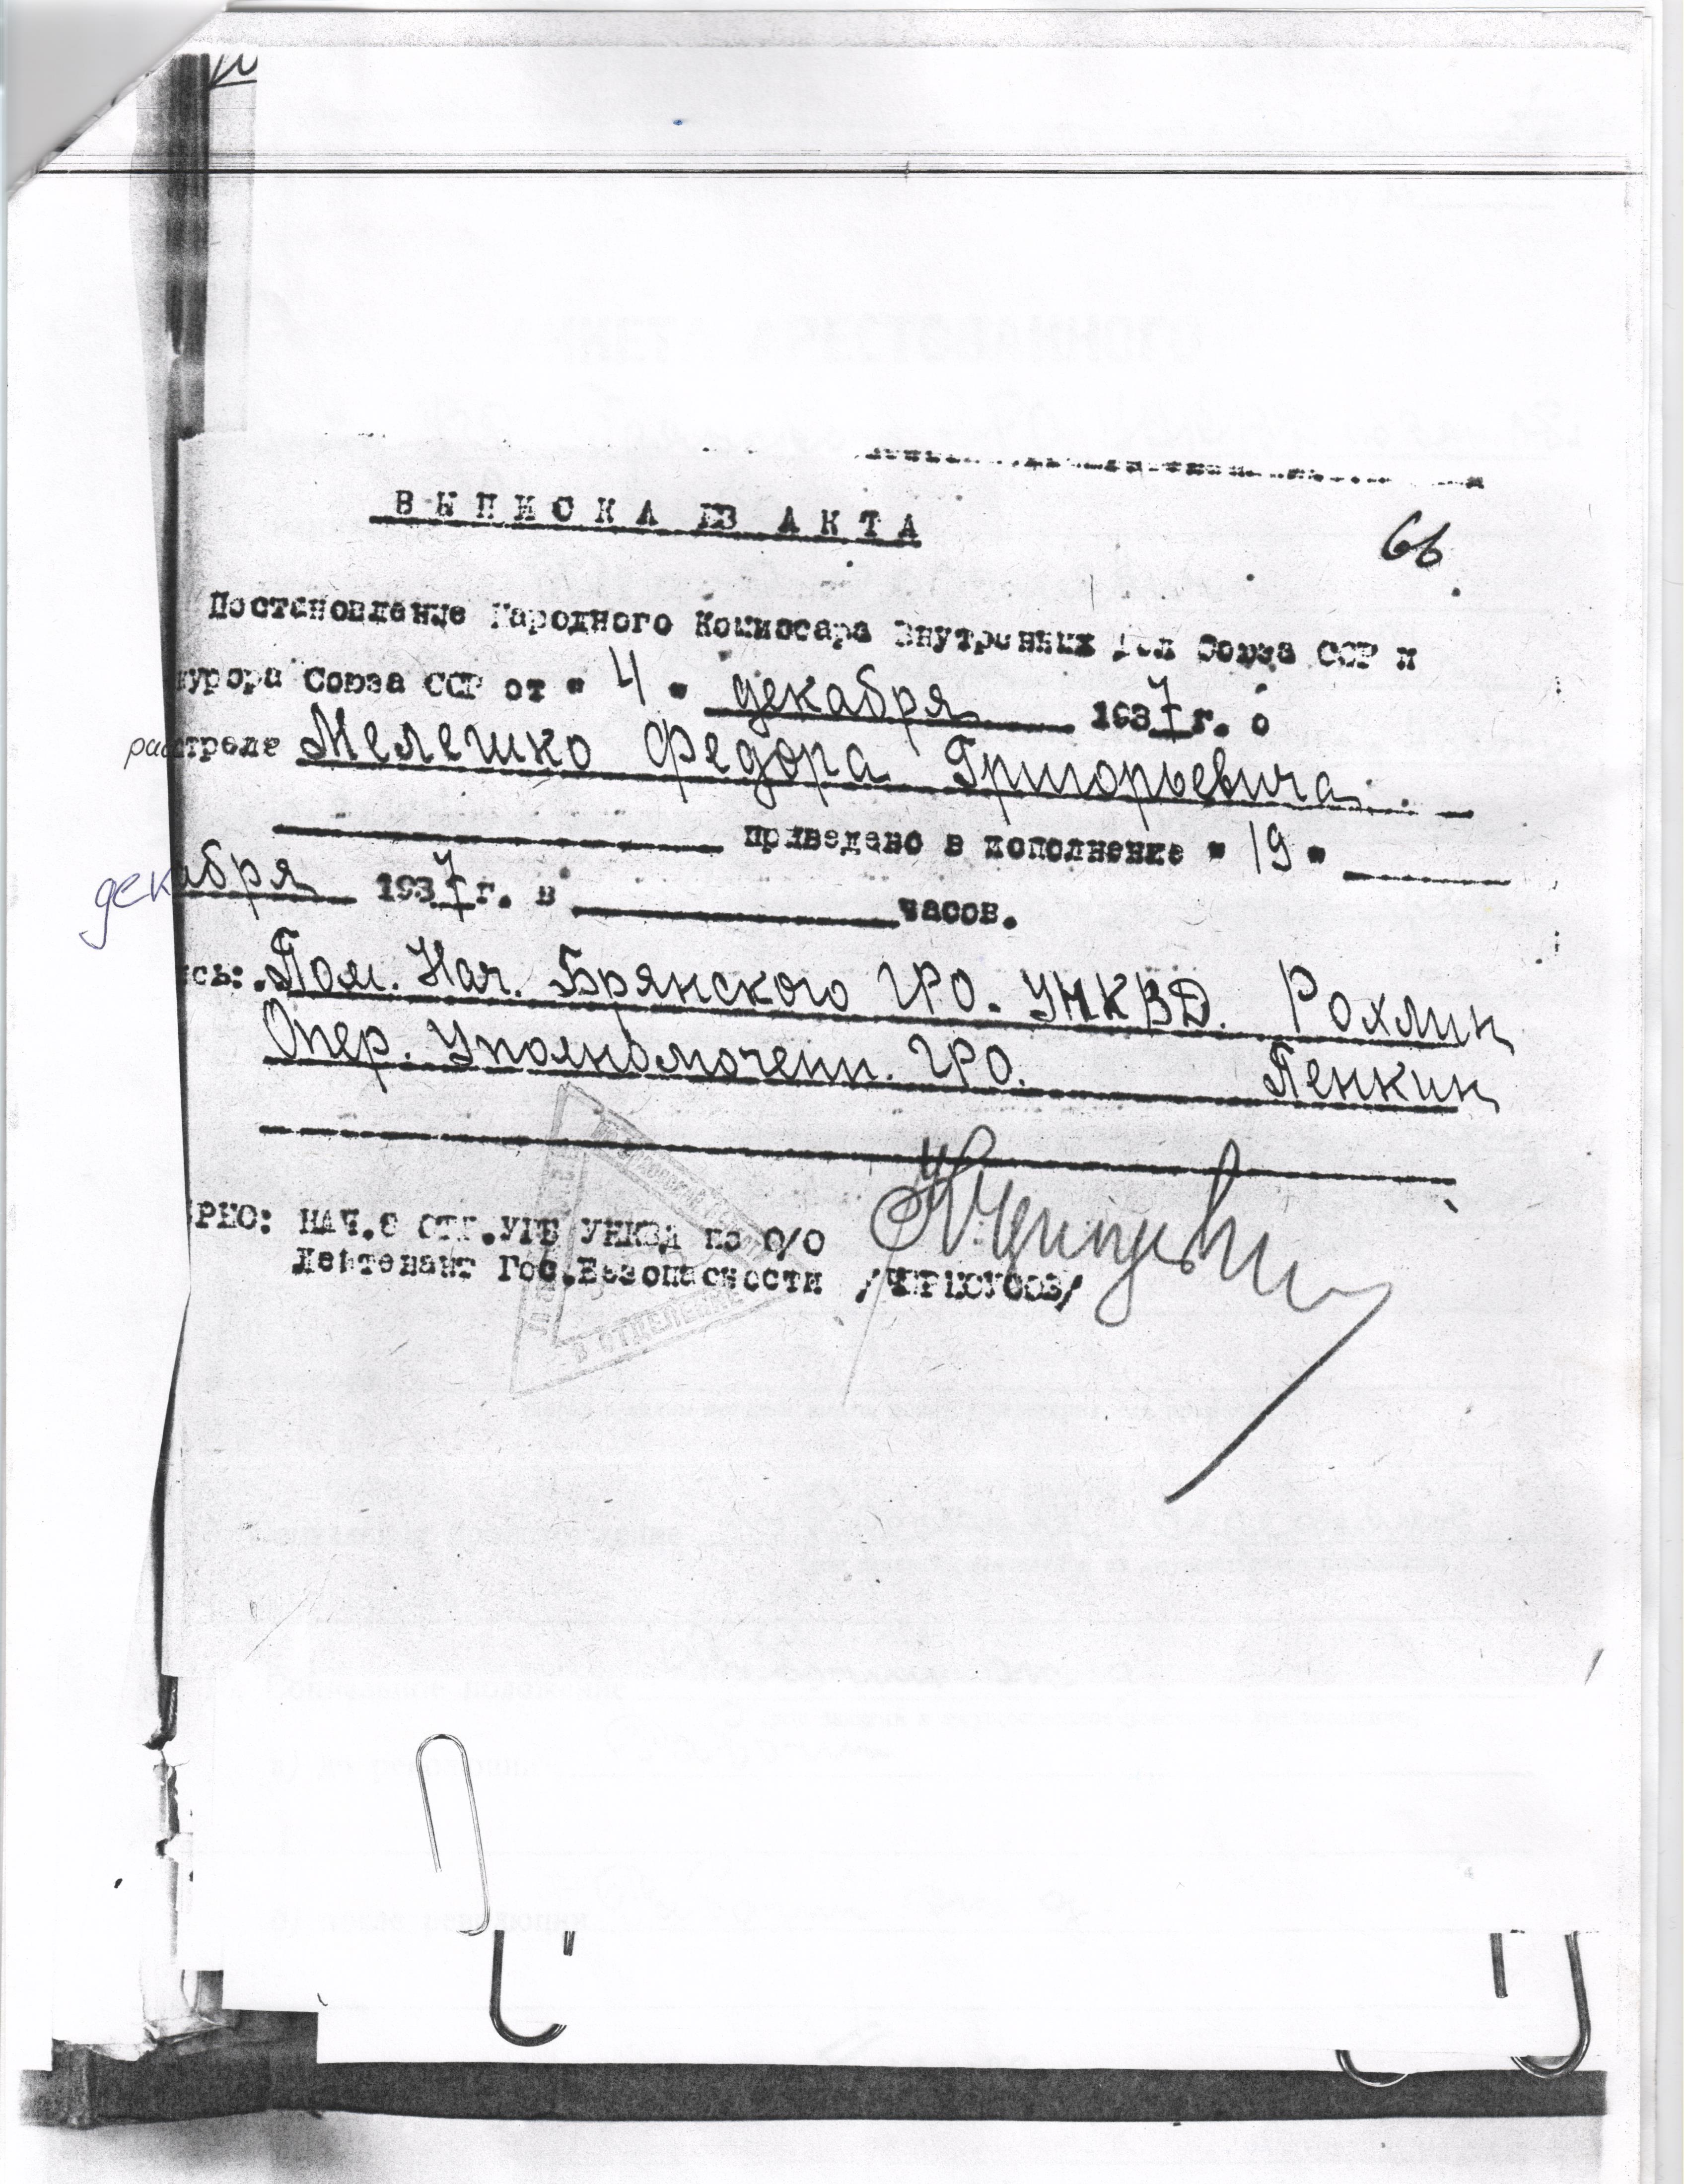 ВЫПИСКА ИЗ АКТА
66
Постановление Народного Комиссара Внутренних Дел Союза ССР и
курора Союза ССР от " 4 " декабря 1937 г. о
расстреле Мелешко Федора Григорьевича
приведено в дополнение " 19 "
декабря 1937 г. в часов.
сь: Пом. Нач. Брянского ГРО. УНКВД. Рохлин
Опер. Уполномоченн. ГРО. Пенкин
РНО: НАЧ.8 ОТД.УГБ УНКВД по О/О
Лейтенант Гос.Безопасности /ЧЕРНОУСОВ/